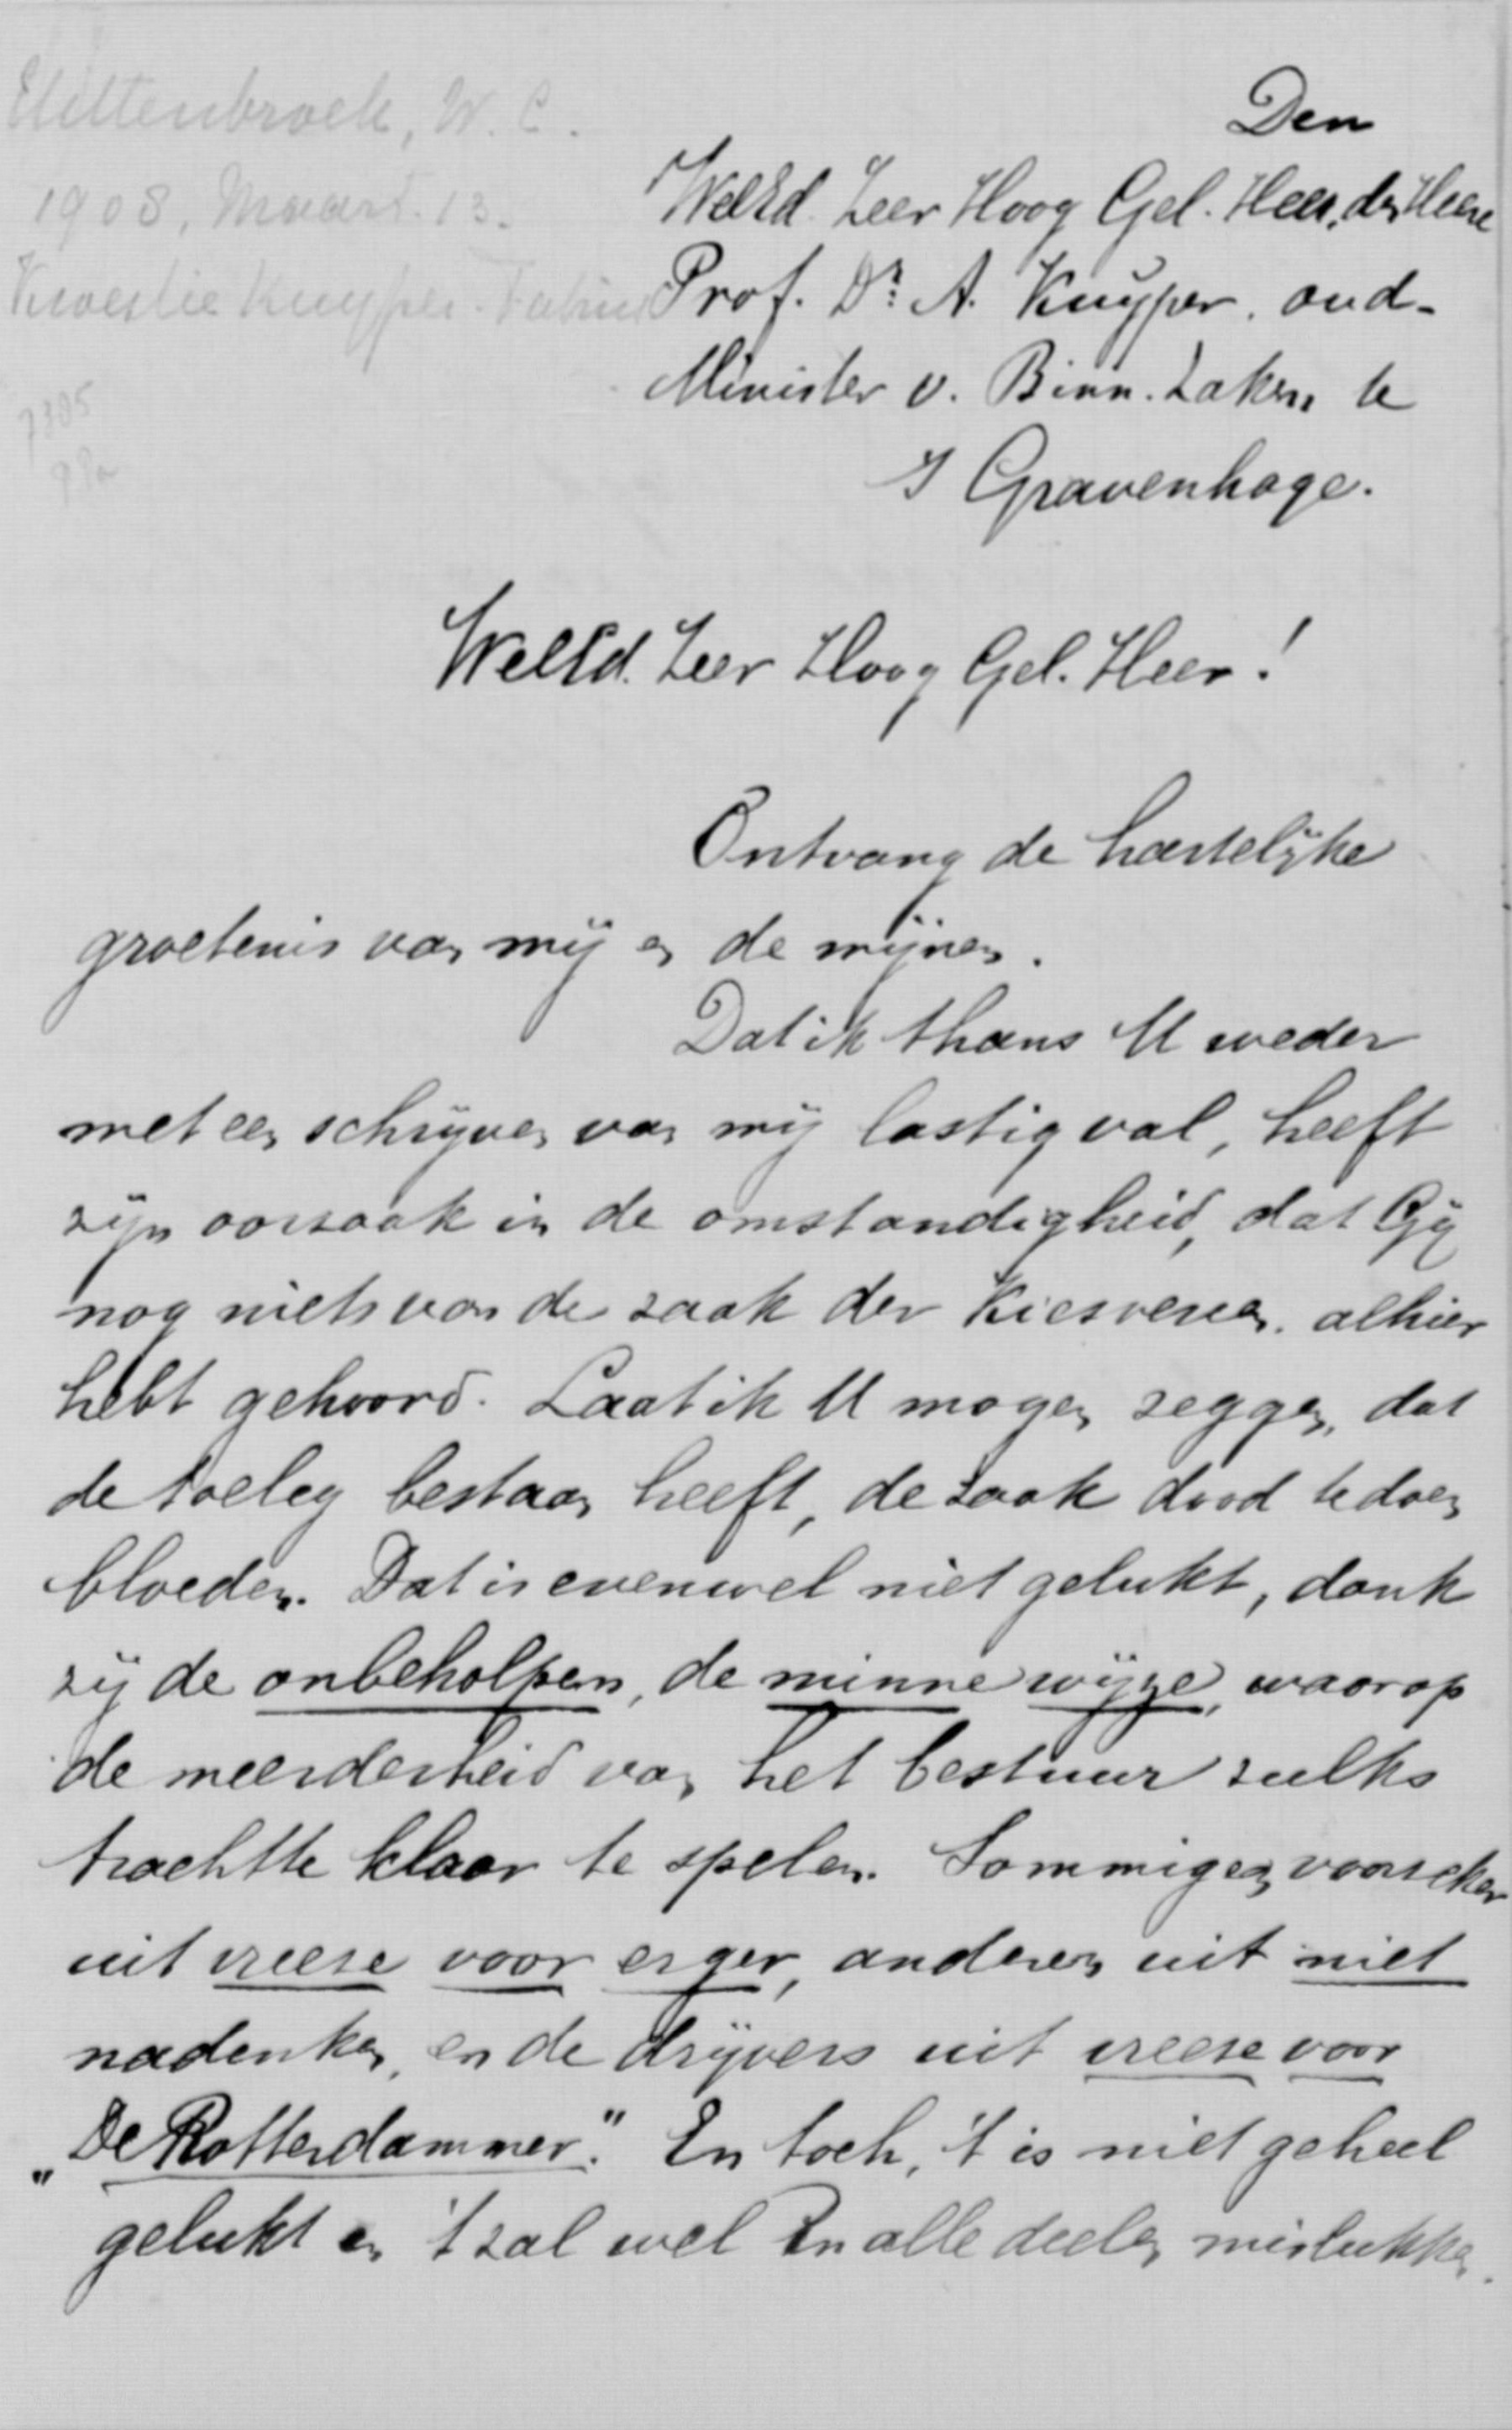 Uittenbroek, W. C.
1908, Maart. 13.
Kwestie Kuyper - Fabius
7305
Den
WelEd. Zeer Hoog Gel. Heer, den Heere
Prof. Dr. A. Kuyper, oud-
Minister v. Binn. Zaken te
s Gravenhage.
WelEd. Zeer Hoog Gel. Heer!
Ontvang de hartelijke
groetenis van mij en de mijnen.
Dat ik thans U weder
met een schrijven van mij lastig val, heeft
zijn oorzaak in de omstandigheid, dat Gij
nog niets van de zaak der Kiesveren. alhier
hebt gehoord. Laat ik U mogen zeggen, dat
de toeleg bestaan heeft, de zaak dood te doen
bloeden. Dat is evenwel niet gelukt, dank
zij de onbeholpen, de minne wijze, waarop
de meerderheid van het bestuur zulks
trachtte klaar te spelen. Sommigen voorzeker
uit vreeze voor erger, anderen uit niet
nadenken, en de drijvers uit vreeze voor
„De Rotterdammer." En toch, 't is niet geheel
gelukt en 't zal wel in alle deelen mislukken.